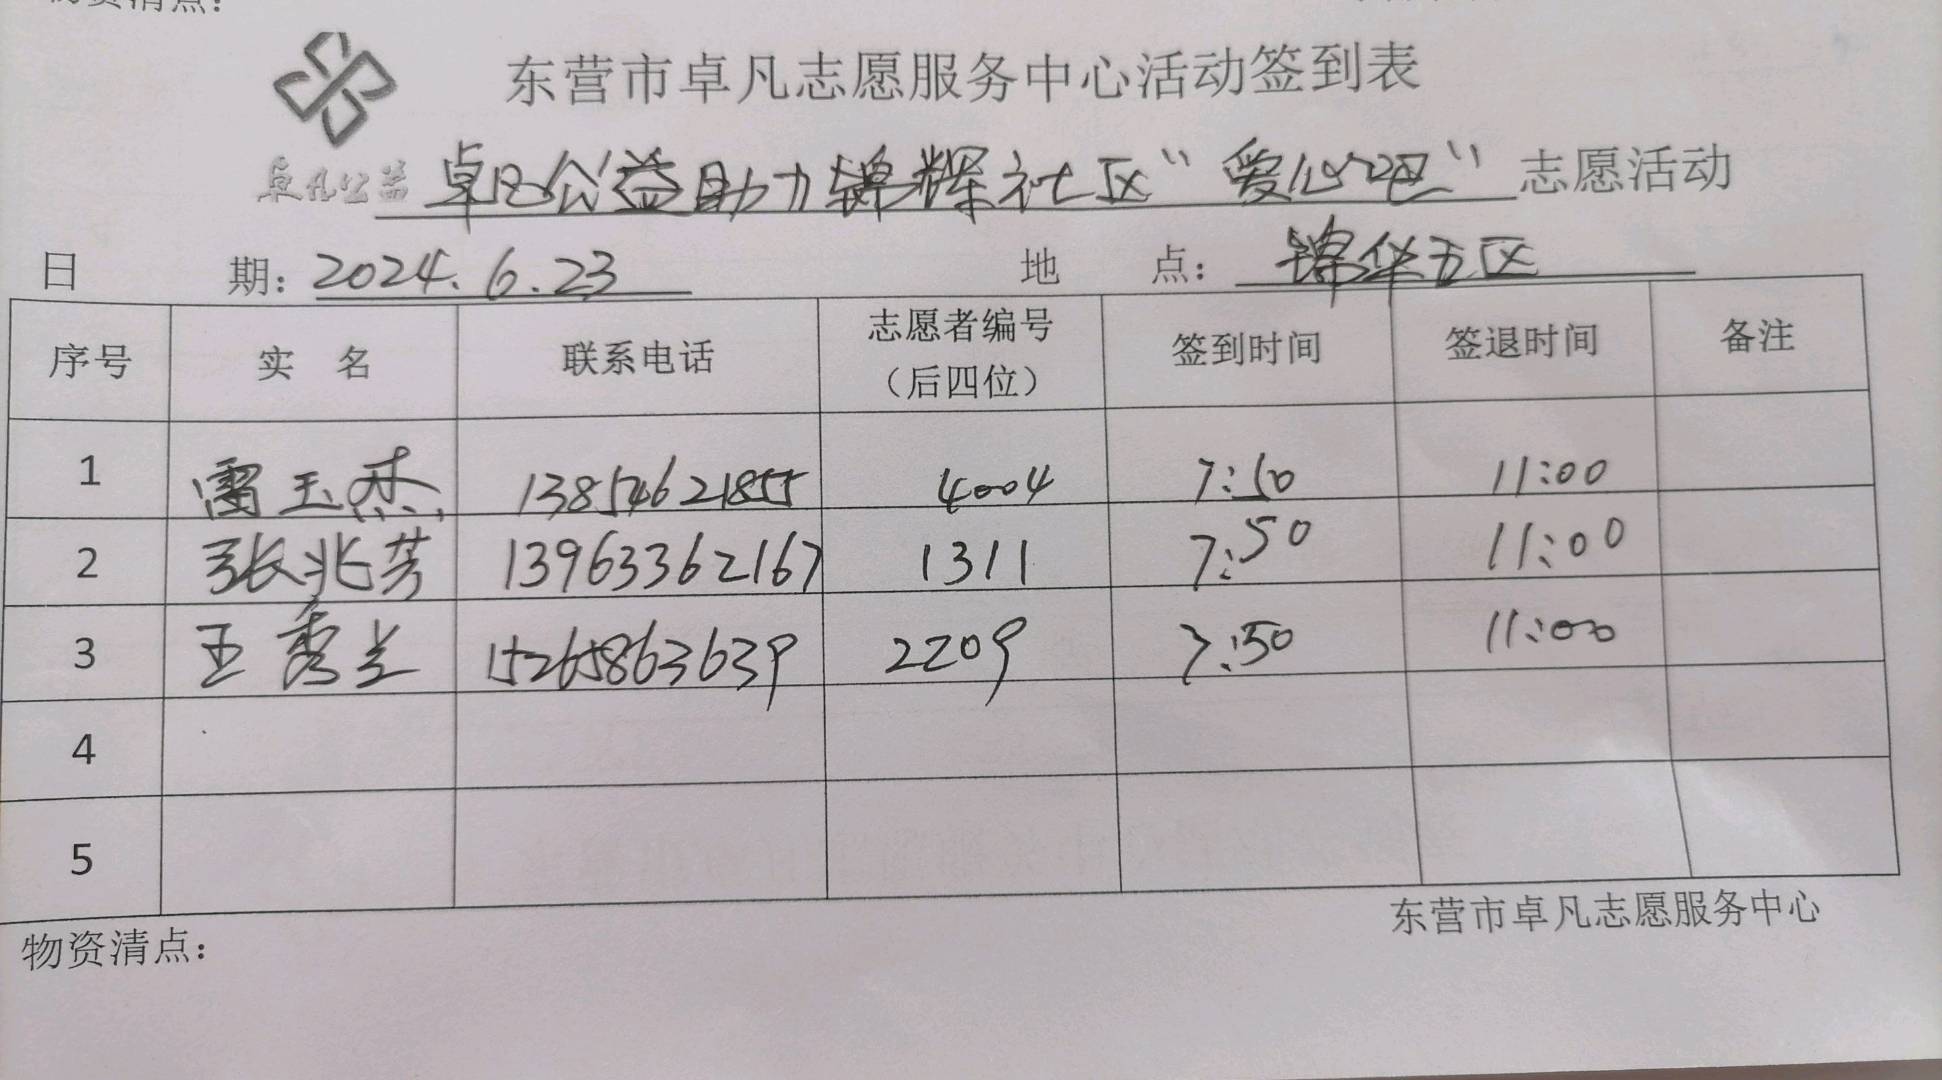 物资清点：
东营市卓凡志愿服务中心活动签到表
卓凡公益 卓凡公益助力锦辉社区“爱心吧”志愿活动
日 期：2024.6.23 地 点：锦华五区
序号 实 名 联系电话 志愿者编号（后四位） 签到时间 签退时间 备注
1 雷玉杰 13854621855 4004 7:50 11:00
2 张兆芳 13963362167 1311 7:50 11:00
3 王秀兰 15265863639 2209 7:50 11:00
4
5
东营市卓凡志愿服务中心
物资清点：